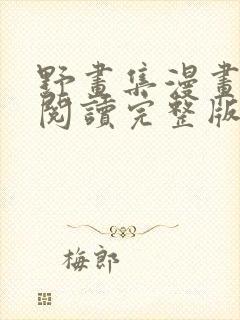 野畫集漫畫
閱讀完整版
梅郎